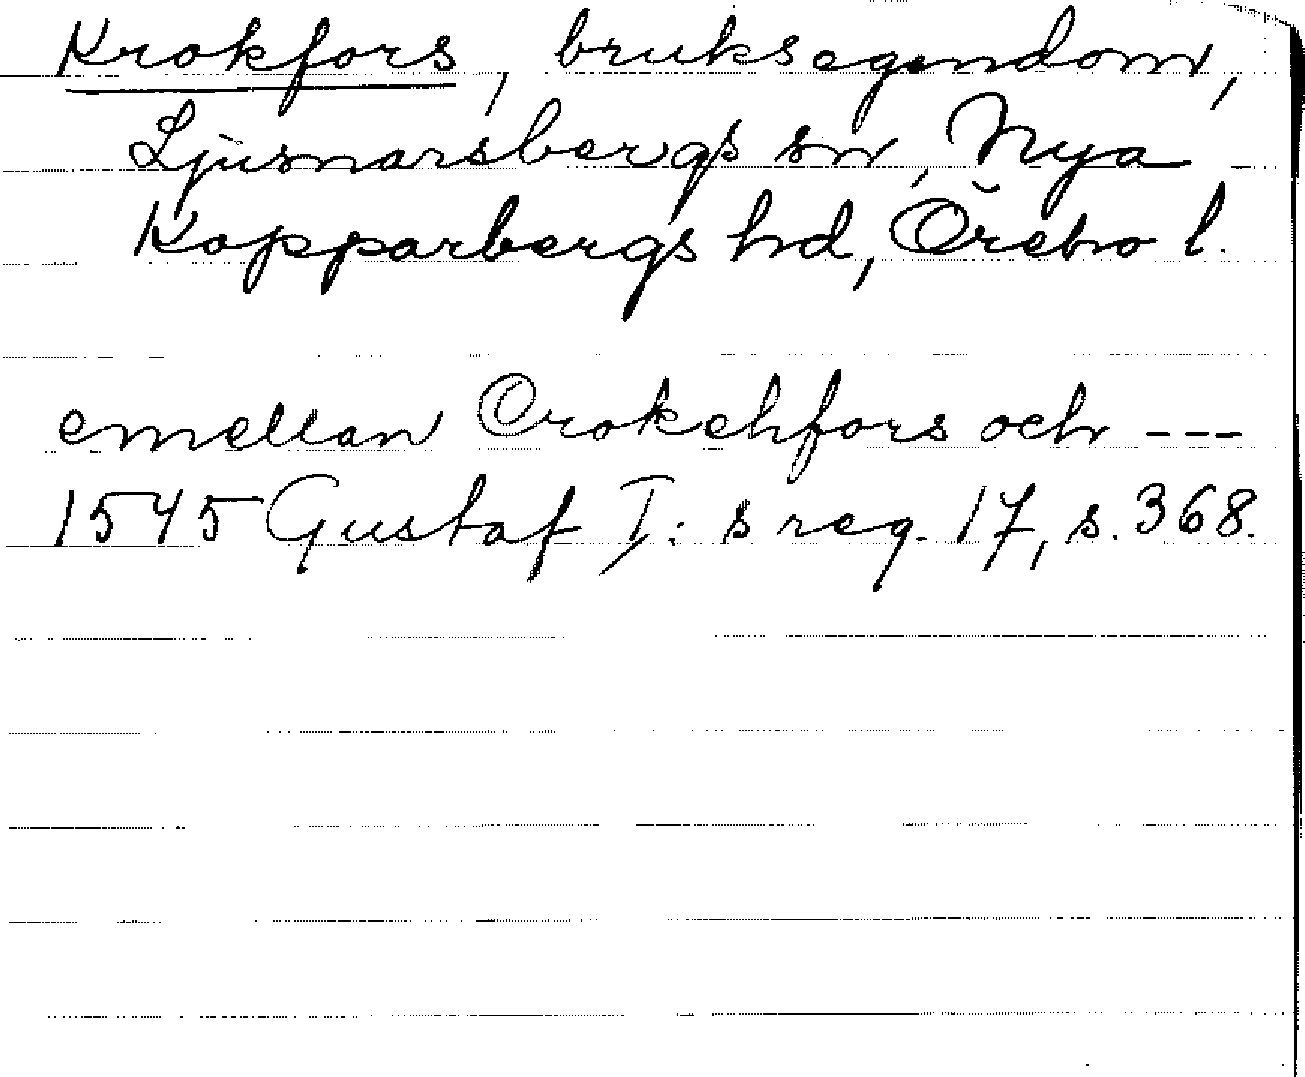 Krokfors, bruksegendom,
Ljusnarsbergs sn, Nya
Kopparbergs hd, Örebro l.
emellan Crokehfors och ---
1545 Gustaf I:s reg. 17, s. 368.